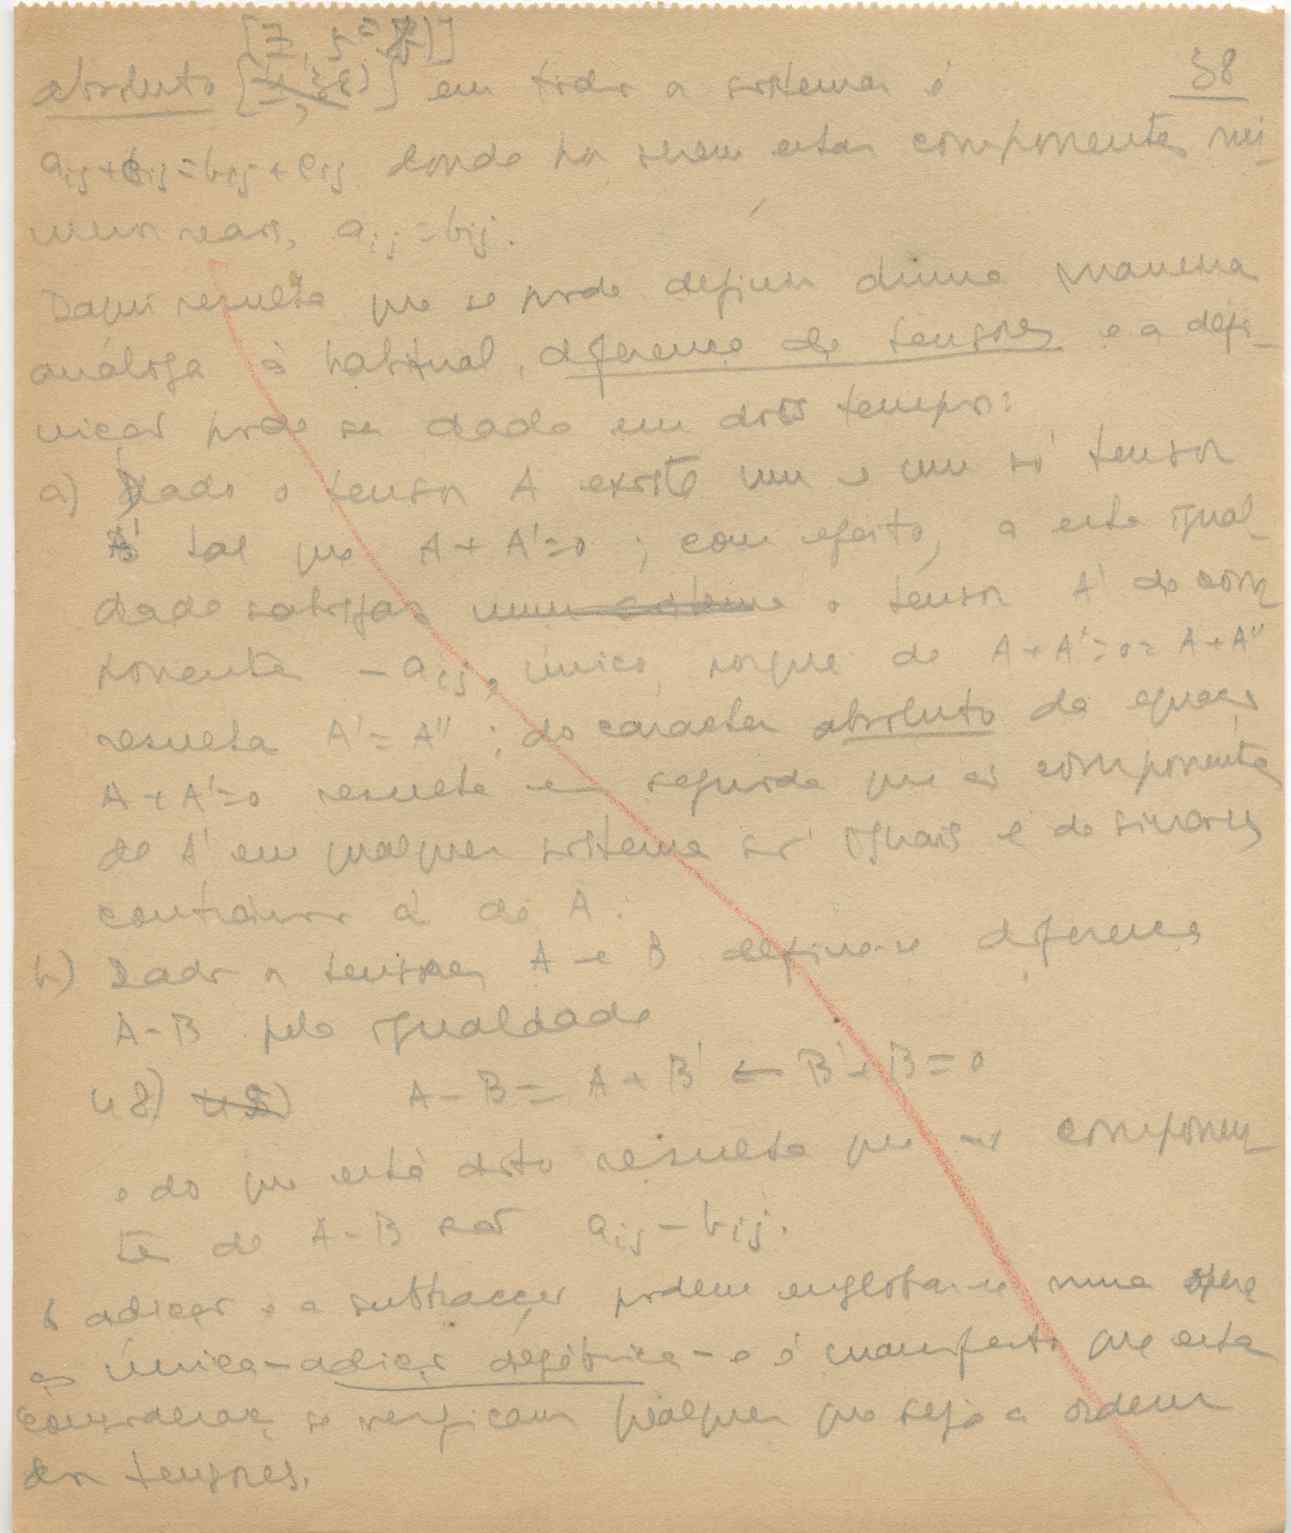 38
absoluto em todos os sistemas é
aij+cij=bij+cij donde por serem estas componentes nú-
meros reais, aij=bij.
Daqui resulta que se pode definir duma maneira
análoga à habitual, diferença de tensores e a defi-
nição pode ser dada em dois tempos:
a) Dado o tensor A existe um e um só tensor
A' tal que A+A'=0; com efeito, a esta igual-
dade satisfaz o tensor A' de com
ponentes -aij, único, porque de A+A'=0=A+A''
resulta A'=A''; do caracter absoluto da equação
A+A'=0 resulta em seguida que as componentes
de A' em qualquer sistema são iguais e de sinais
contrários às de A.
b) Dados os tensores A e B define-se diferença
A-B pela igualdade
48) A-B = A+B' ← B'+B=0
e do que está dito resulta que as componen-
tes de A-B são aij-bij.
A adição e a subtracção podem englobar-se numa opera
ção única-adição algébrica-e é manifesto que estas
considerações se verificam qualquer que seja a ordem
dos tensores.